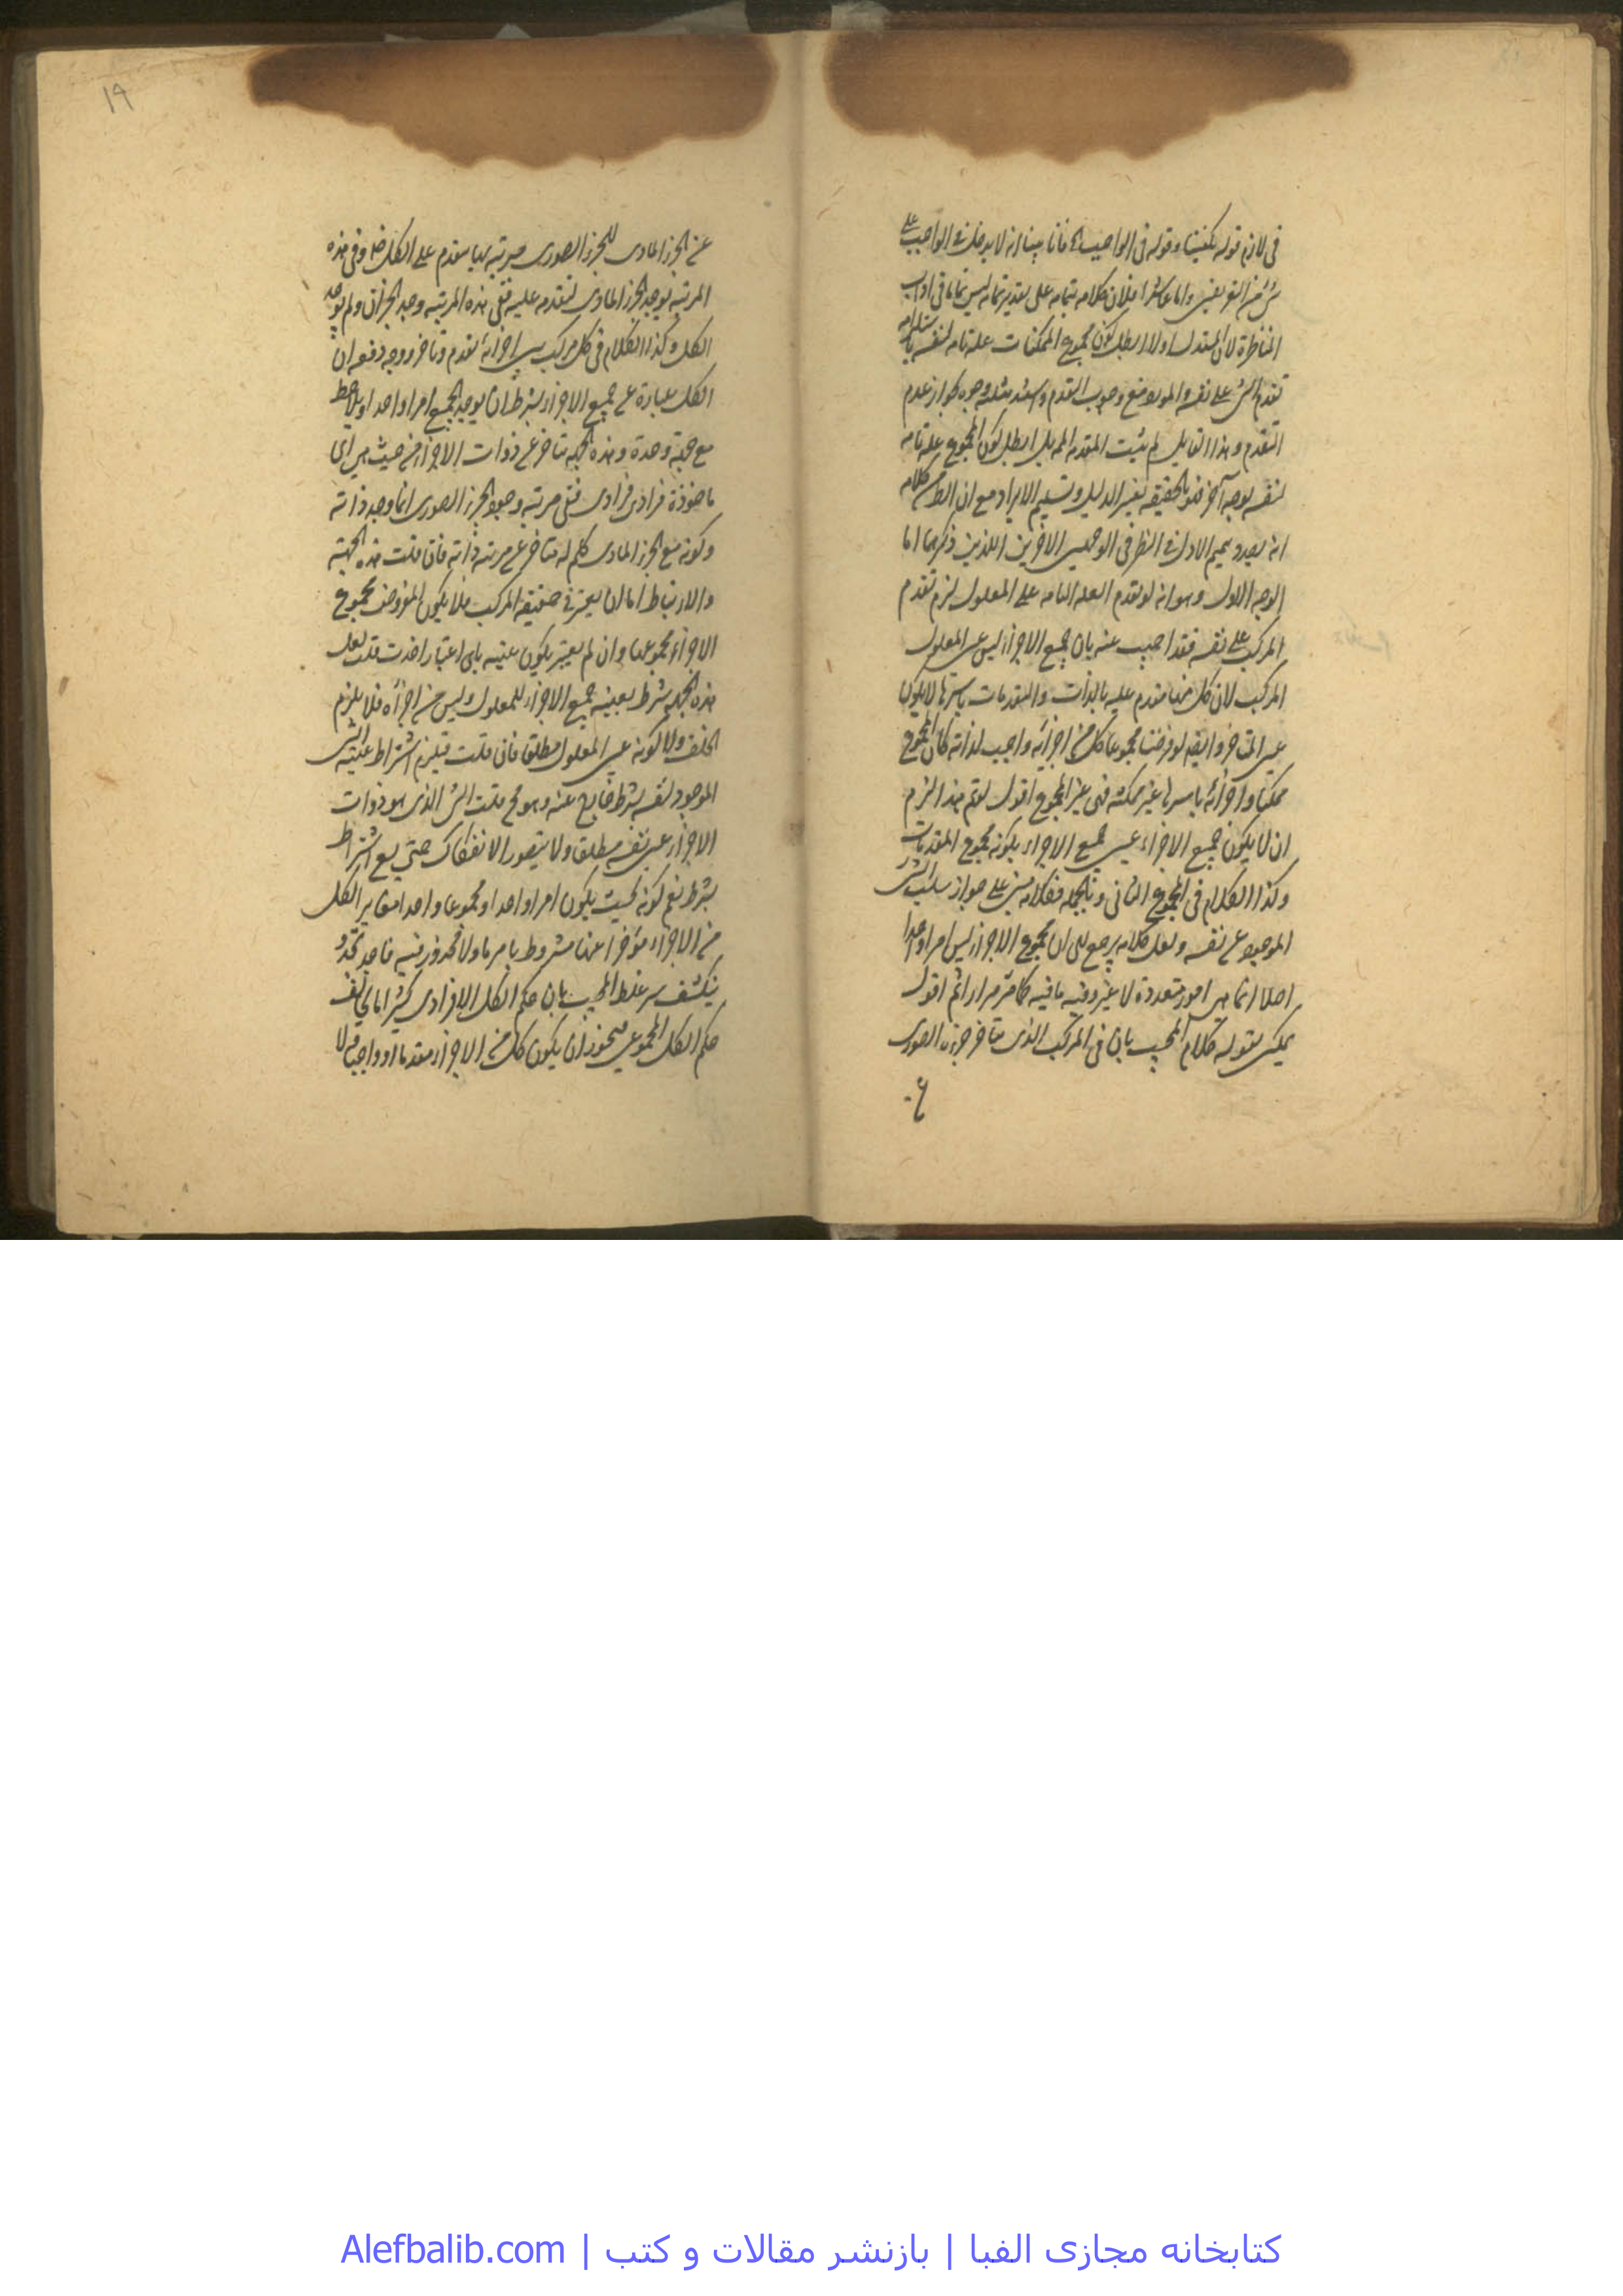 في لازم قوله يكفينا وقوله في الواجب الخ فانا بينا انه لا يدخل في الواجب على
شيء من التقريفين واما عاشرا فلان كلامه بتمامه على تقدير تمامه ليس تماما في اداب
المناظرة لان المستدل اولا ابطل كون مجموع الممكنات علة تامة لنفسه باستلزامه
تقدم الشيء على نفسه والمورد منع وجوب التقدم وسنده مثله وجوه لجواز عدم
التقدم وهذا القايل لم يثبت المقدمة الممـ بل ابطل كون المجموع علة تامة
لنفسه بوجه آخر فهو بالحقيقة تغيير الدليل وتسليم الايراد مع ان الظ من كلامه
انه بصدد تميم الاول في النظر في الوجهين الاخرين اللذين ذكرهما اما
الوجه الاول وهو انه لو تقدم العلة التامة على المعلول لزم تقدم
المركب على نفسه فقد اجيب عنه بان جميع الاجزاء ليس عين المعلول
المركب لان كل منها متقدم عليه بالذات والمتقدمات باسرها لا يكون
عين المتاخر وايضا لو فرضنا مجموعا كل من اجزائه واجب لذاته كان المجموع
ممكنا واجزائه باسرها غير ممكنة فهي غير المجموع اقول لو تم هذا لزم
ان لا يكون جميع الاجزاء عين جميع الاجزاء بكونه مجموع المتقدمات
وكذا الكلام في المجموع الثاني وبالجملة فكلامه مبني على جواز سلب الشيء
الموجود عن نفسه ولعل كلامه يرجع الى ان مجموع الاجزاء ليس امرا واحدا
اصلا انما هي امور متعددة لا غير وفيه ما فيه كما مر مرارا ثم اقول
يمكن تقوية كلام المجيب بان في المركب الذي يتاخر جزءه الصوري
ع
١٩
عن الجزء المادي للجزء الصوري مرتبة بها يتقدم على الكل وفي هذه
المرتبة يوجد الجزء المادي لتقدمه عليه ففي هذه المرتبة وجد الجزءان ولم يوجد
الكل وكذا الكلام في كل مركب بين اجزائه تقدم وتاخر ووجه دفعه ان
الكل عبارة عن جميع الاجزاء بشرط ان يوجد الجميع امرا واحدا ويلاحظ
مع جهة وحدة وهذه الجهة متاخرة عن ذوات الاجزاء من حيث هي اي
ماخوذة فرادى فرادى ففي مرتبة وجود الجزء الصوري انما وجد ذاته
وكونه مع الجزء المادي كلم له متاخر عن مرتبة ذاته فان قلت هذه الجهة
والارتباط اما ان يعتبر في حقيقة المركب فلا يكون المفروض مجموع
الاجزاء مجموعها وان لم يعتبر يكون عينه باي اعتبار اخذت قلت لعل
هذه الجهة شرط لعينية جميع الاجزاء للمعلول وليس من اجزائه فلا يلزم
الخلف ولا كونه عين المعلول مطلقا فان قلت فيلزم اشتراط عينية الشيء
الموجود لنفسه بشرط خارج عنه وهو مح قلت الشيء الذي هو ذوات
الاجزاء عين نفسه مطلقا ولا يتصور الانفكاك حتى يسع اشتراط
بشرط نعم كونه بحيث يكون امرا واحدا ومجموعا واحدا مغاير الكل
من الاجزاء مؤخرا عنها مشروط بامر ما ولا محذور فيه فاحد تحقق و
ينكشف سر غلط المجيب بان حكم الكل الافرادي كثيرا ما يخالف
حكم الكل المجموعي فيجوز ان يكون كل من الاجزاء متقدما او واجبا ولا
کتابخانه مجازی الفبا | بازنشر مقالات و کتب | Alefbalib.com